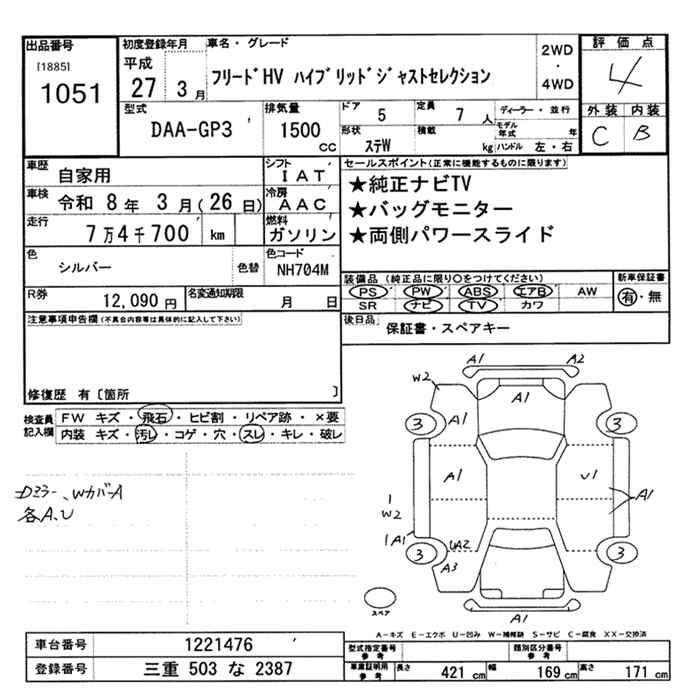 出品番号
[1885]
1051
初度登録年月
平成
27 3月
車名・グレード
フリードHV ハイブリッドジャストセレクション
2WD
・
4WD
評価点
4
外装 内装
C B
型式
DAA-GP3
排気量
1500
cc
ドア 5
定員 7 人
ディーラー・並行
モデル年式 年
形状 ステW
積載 kg
ハンドル 左・右
車歴 自家用
シフト IAT
車検 令和 8年 3月(26日)
冷房 AAC
走行 7万4千700 km
燃料 ガソリン
色 シルバー 色替
色コード NH704M
R券 12,090円
名変通知期限 月 日
セールスポイント(正常に機能するものに限ります)
★純正ナビTV
★バッグモニター
★両側パワースライド
装備品(純正品に限り○をつけてください)
PS PW ABS エアB AW
SR ナビ TV カワ
新車保証書
有・無
後日品
保証書・スペアキー
注意事項申告欄(不具合内容等は具体的に記入して下さい)
修復歴 有〔箇所 〕
検査員記入欄
FW キズ・飛石・ヒビ割・リペア跡・×要
内装 キズ・汚レ・コゲ・穴・スレ・キレ・破レ
Dミラー、WカバーA
各A、U
A1 A2
W2
A1
3 A1 3
A1 U1
A1
1
W2
1 A1
3 UA2 3
A3
A1
スペア
A−キズ E−エクボ U−凹み W−補修跡 S−サビ C−腐食 XX−交換済
車台番号 1221476
登録番号 三重 503 な 2387
型式指定番号
参考
類別区分番号
参考
車庫証明用
参考
長さ 421 cm
幅 169 cm
高さ 171 cm